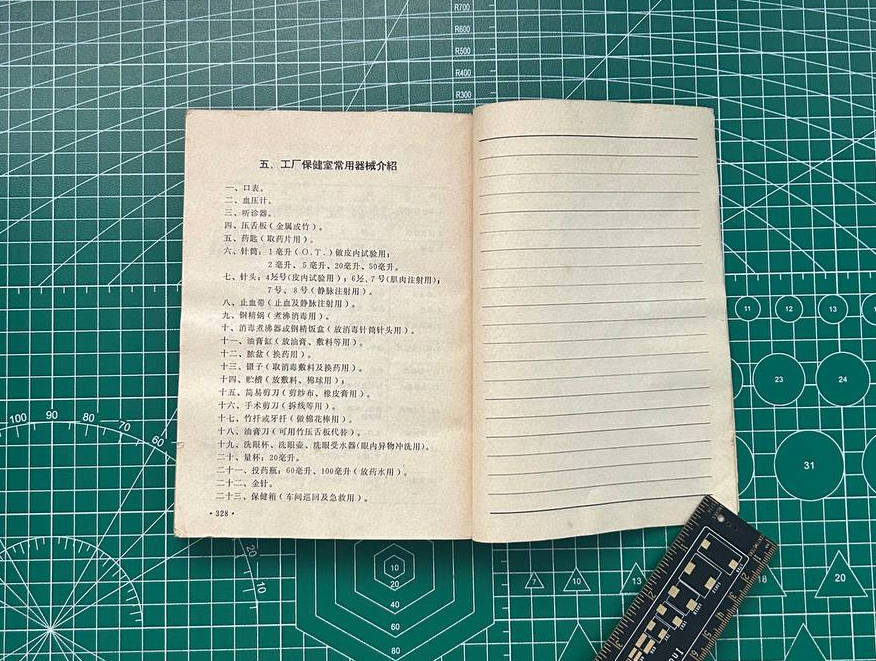 R700
R600
R500
R400
R300
五、工厂保健室常用器械介绍
一、口表。
二、血压计。
三、听诊器。
四、压舌板（金属或竹）。
五、药匙（取药片用）。
六、针筒：1毫升（O.T.）做皮内试验用；
2毫升、5毫升、20毫升、50毫升。
七、针头：4½号(皮内试验用)；6½、7号(肌肉注射用)；
7号、8号（静脉注射用）。
八、止血带（止血及静脉注射用）。
九、钢精锅（煮沸消毒用）。
十、消毒煮沸器或钢精饭盒（放消毒针筒针头用）。
十一、油膏缸（放油膏、敷料等用）。
十二、脓盆（换药用）。
十三、镊子（取消毒敷料及换药用）。
十四、贮槽（放敷料、棉球用）；
十五、简易剪刀（剪纱布、橡皮膏用）。
十六、手术剪刀（拆线等用）。
十七、竹扦或牙扦（做棉花棒用）。
十八、油膏刀（可用竹压舌板代替）。
十九、洗眼杯、洗眼壶、洗眼受水器(眼内异物冲洗用)。
二十、量杯：20毫升。
二十一、投药瓶：60毫升、100毫升（放药水用）。
二十二、金针。
二十三、保健箱（车间巡回及急救用）。
·328·
11 12 13
23 24
31
100 90 80 70 60
20 10
10
20
40
60
80
7 10 13 18 20